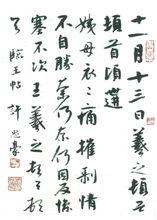 十一月十三日羲之頓首
頓首頃遘
姨母哀哀痛摧剝情
不自勝奈何奈何因反慘
塞不次王羲之頓首頓
首 臨王帖 許豪